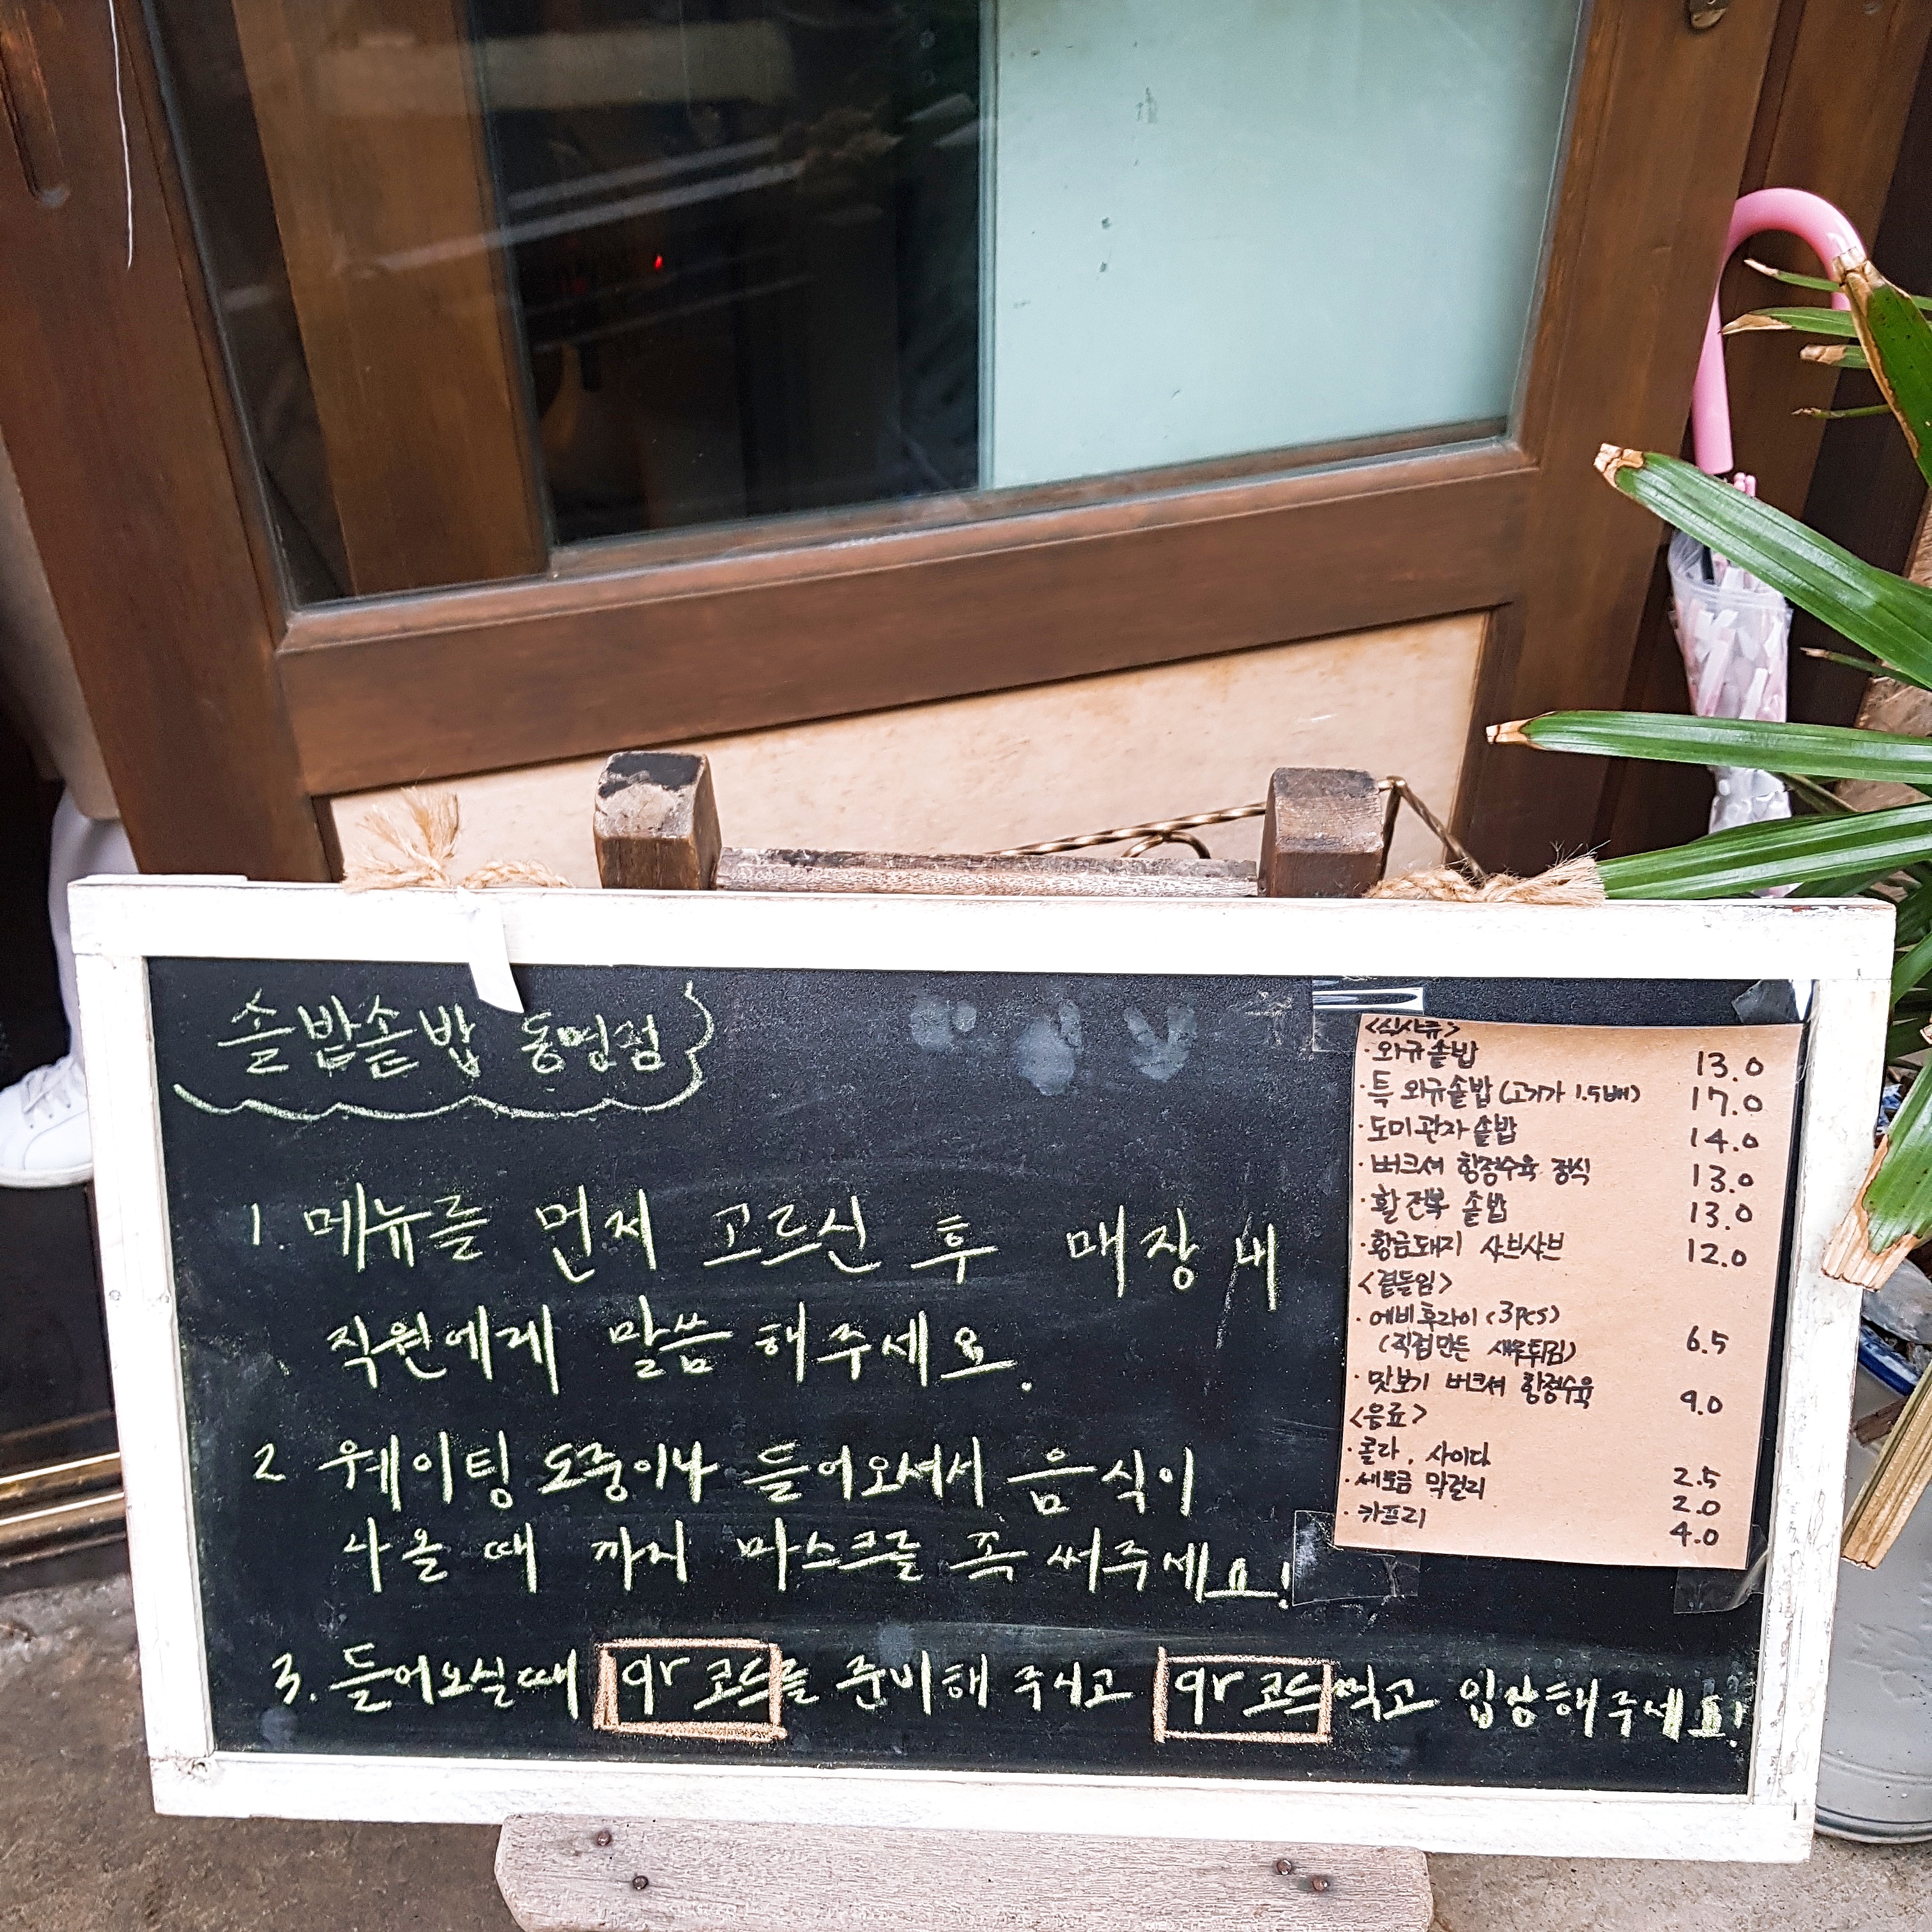 솔밥솥밥 동명점
1. 메뉴를 먼저 고르신 후 매장 내
직원에게 말씀 해주세요.
2 웨이팅 도중이나 들어오셔서 음식이
나올 때 까지 마스크를 꼭 써주세요!
3. 들어오실때 qr 코드를 준비해 주시고 qr 코드찍고 입장해주세요!
<식사류>
· 와규솥밥 13.0
· 특 와규솥밥 (고기가 1.5배) 17.0
· 도미관자 솥밥 14.0
· 버크셔 항정수육 정식 13.0
· 활 전복 솥밥 13.0
· 황금돼지 샤브샤브 12.0
<곁들임>
· 에비후라이 (3pcs)
(직접만든 새우튀김) 6.5
· 맛보기 버크셔 항정수육 9.0
<음료>
· 콜라, 사이다 2.5
· 막걸리 2.0
· 카프리 4.0